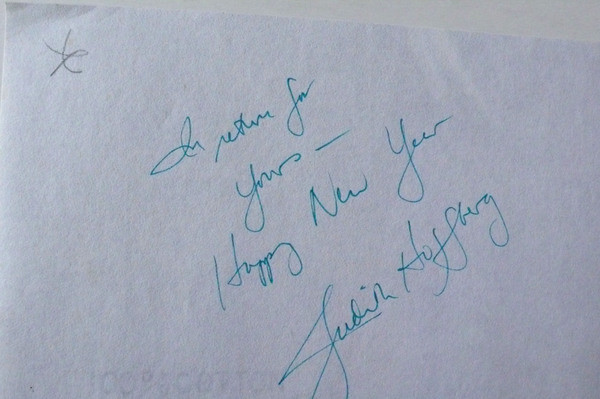 In return for
Yours —
Happy New Year
Judith Hoffberg
100% COTTON